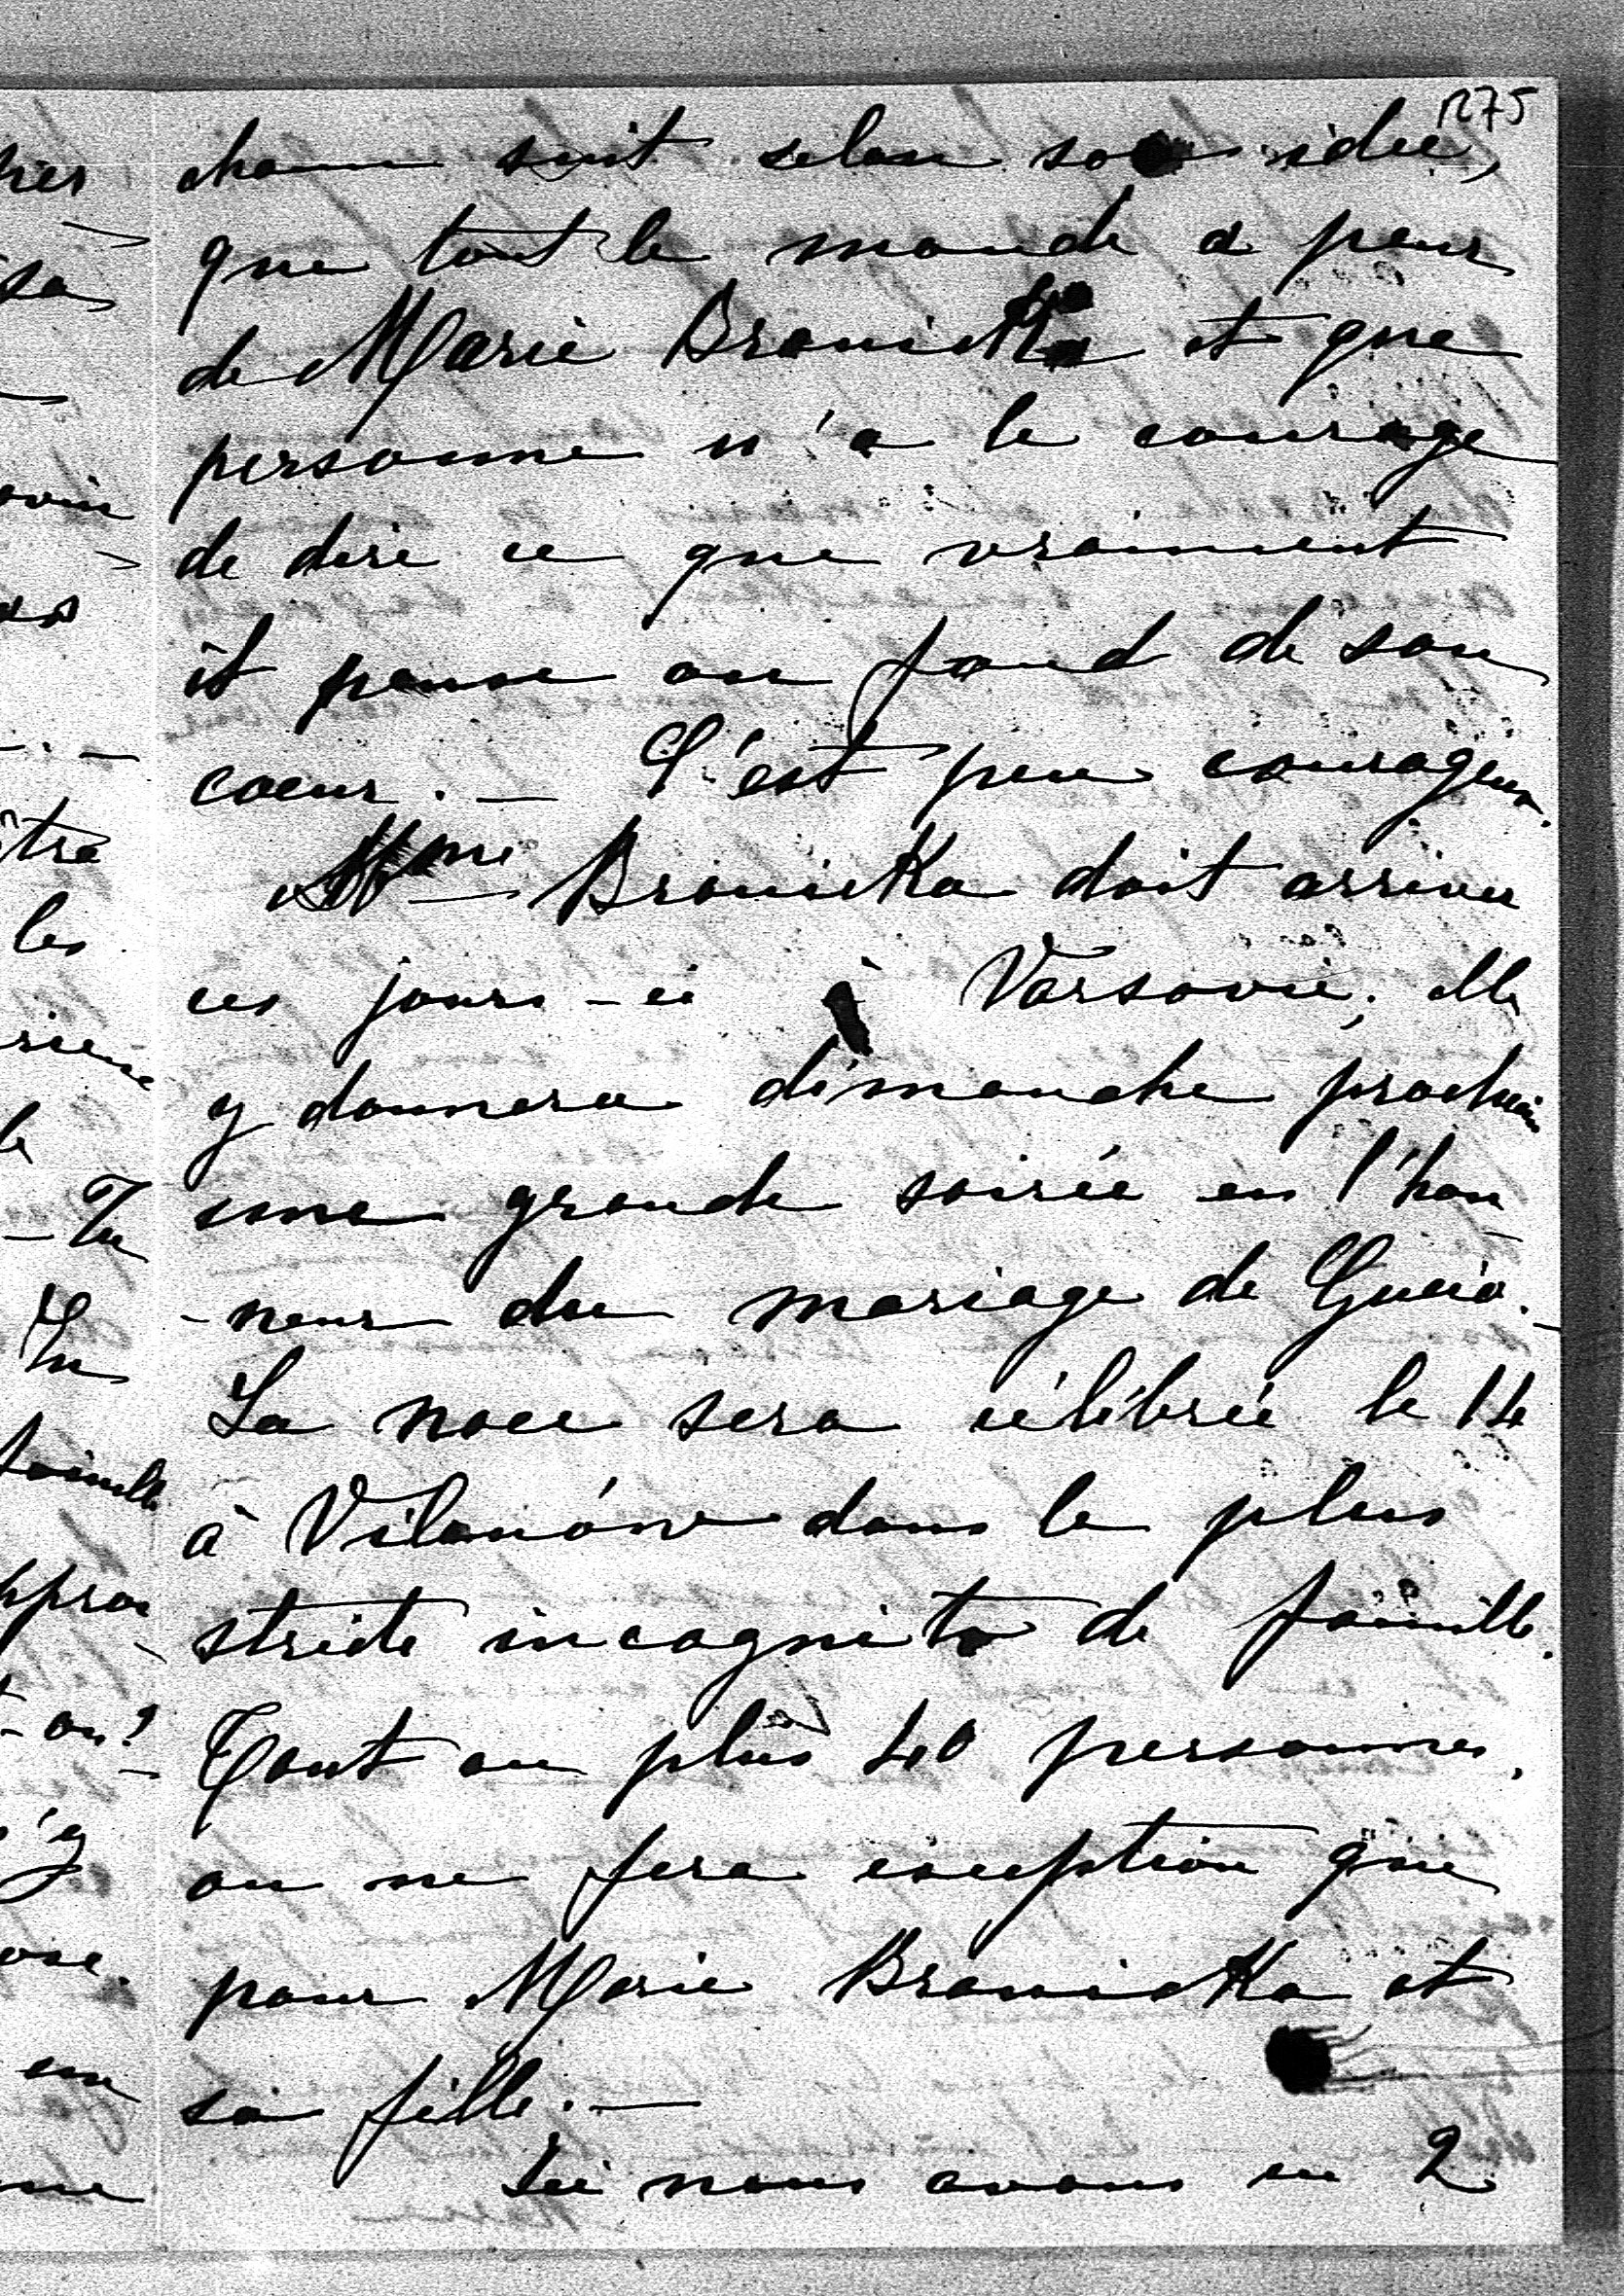 1275
chacun suit selon son idée,
que tout le monde a peur
de Marie Branicka et que
personne n'a le courage
de dire ce que vraiment
il pense au fond de son
coeur. — C'est peu courageux.
Mme Branicka doit arriver
ces jours-ci à Varsovie; elle
y donnera dimanche prochain
une grande soirée en l'hon
-neur du mariage de Gucio. —
La noce sera célébrée le 14
à Vilanów dans le plus
stricte incognito de famille.
Tout au plus 40 personnes,
on ne fera exception que
pour Marie Branicka et
sa fille. —
Ici nous avons eu 2